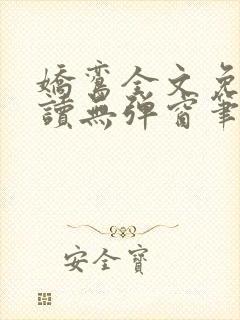 嬌鸞全文免
讀無彈窗筆
安全寶